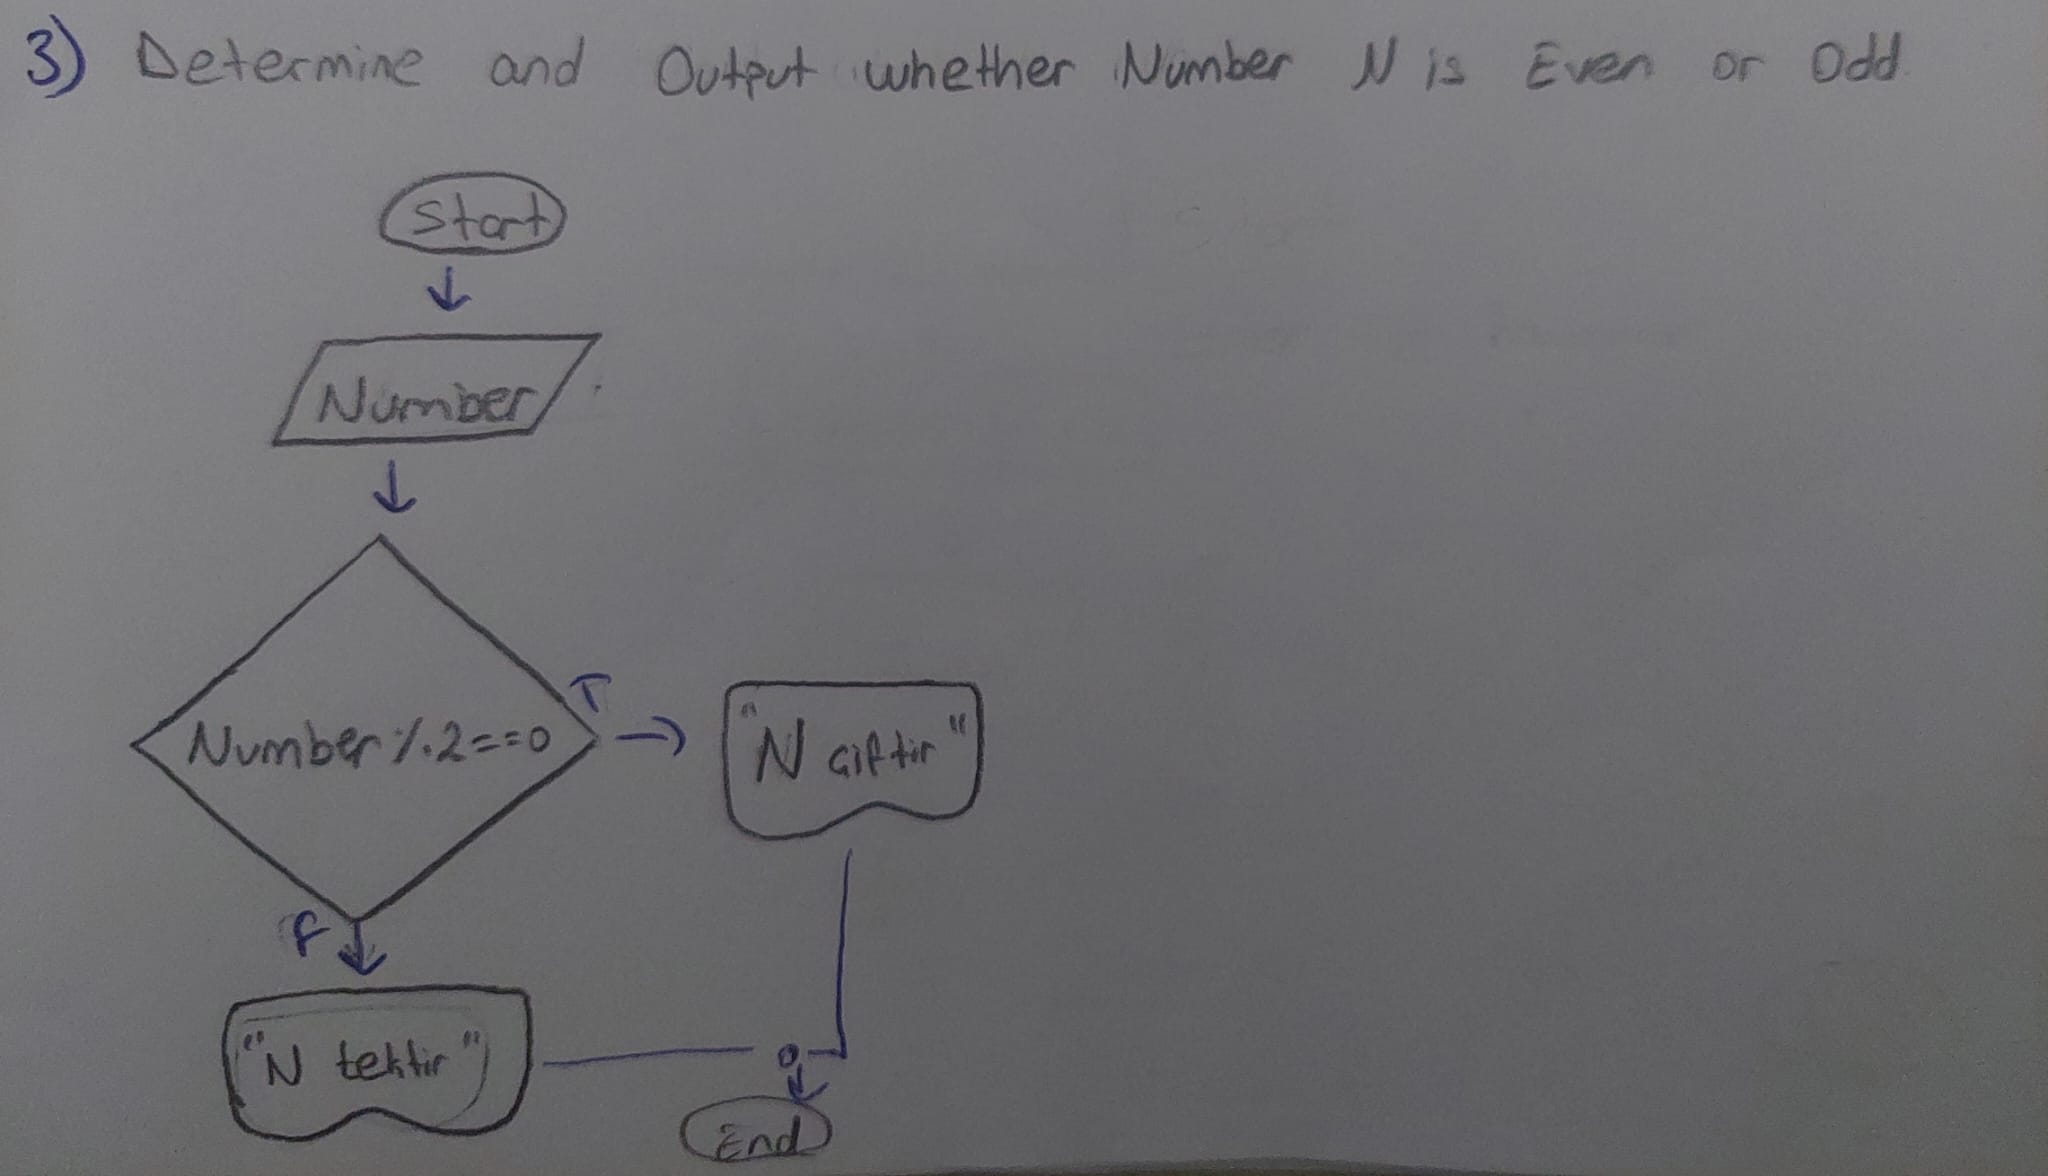 3) Determine and Output whether Number N is Even or Odd
Start
Number
Number % 2 == 0
T
"N çifttir"
F
"N tektir"
End